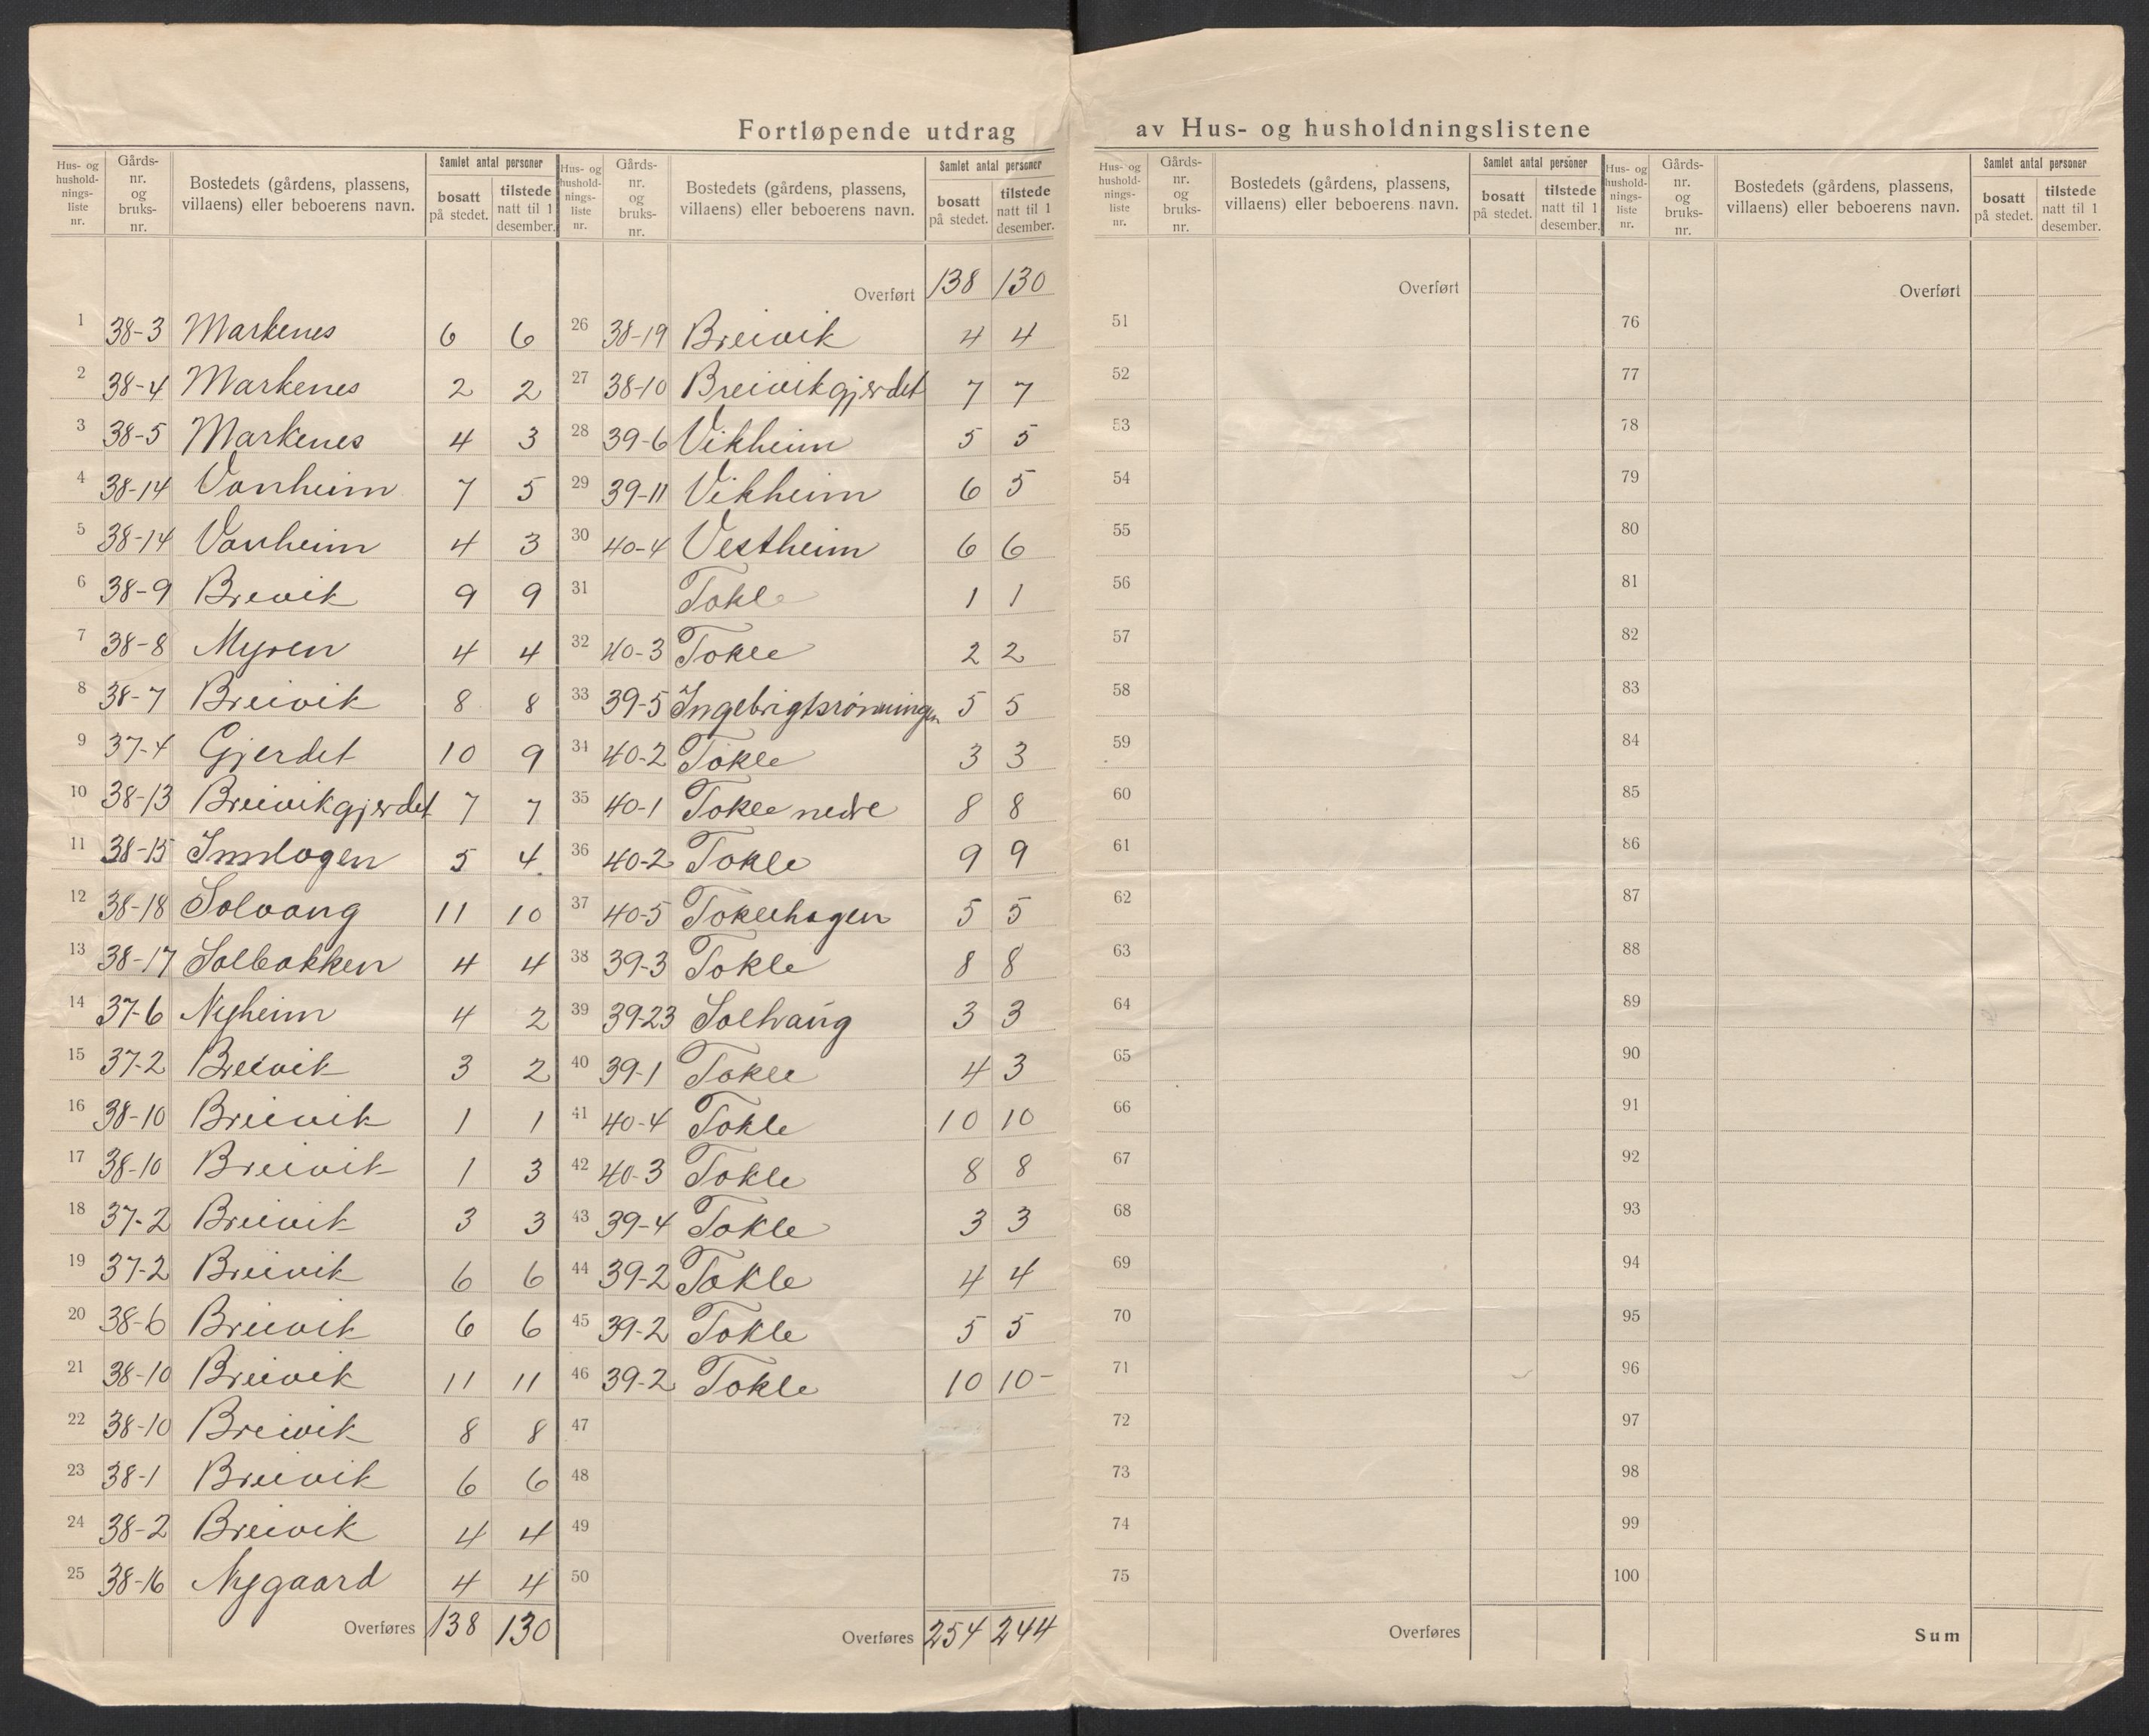 Fortløpende utdrag av Hus- og husholdningslistene
Hus- og hushold-nings-liste nr. | Gårds-nr. og bruks-nr. | Bostedets (gårdens, plassens, villaens) eller beboerens navn. | Samlet antal personer | bosatt på stedet. | tilstede natt til 1 desember.
1 38-3 Markenes 6 6
2 38-4 Markenes 2 2
3 38-5 Markenes 4 3
4 38-14 Vonheim 7 5
5 38-14 Vonheim 4 3
6 38-9 Brevik 9 9
7 38-8 Myren 4 4
8 38-7 Breivik 8 8
9 37-4 Gjerdet 10 9
10 38-13 Breivikgjerdet 7 7
11 38-15 5 4
12 38-18 Solvang 11 10
13 38-17 Solbakken 4 4
14 37-6 Nyheim 4 2
15 37-2 Breivik 3 2
16 38-10 Breivik 1 1
17 38-10 Breivik 1 3
18 37-2 Breivik 3 3
19 37-2 Breivik 6 6
20 38-6 Breivik 6 6
21 38-10 Breivik 11 11
22 38-10 Breivik 8 8
23 38-1 Breivik 6 6
24 38-2 Breivik 4 4
25 38-16 Nygaard 4 4
Overføres 138 130
Hus- og hushold-nings-liste nr. | Gårds-nr. og bruks-nr. | Bostedets (gårdens, plassens, villaens) eller beboerens navn. | Samlet antal personer | bosatt på stedet. | tilstede natt til 1 desember.
Overført 138 130
26 38-19 Breivik 4 4
27 38-10 Breivikgjerdet 7 7
28 39-6 Vikheim 5 5
29 39-11 Vikheim 6 5
30 40-4 Vestheim 6 6
31 Tokle 1 1
32 40-3 Tokle 2 2
33 39-5 Ingebrigtsrønningen 5 5
34 40-2 Tokle 3 3
35 40-1 Tokle nedre 8 8
36 40-2 Tokle 9 9
37 40-5 Toklehagen 5 5
38 39-3 Tokle 8 8
39 39-23 Solhaug 3 3
40 39-1 Tokle 4 3
41 40-4 Tokle 10 10
42 40-3 Tokle 8 8
43 39-4 Tokle 3 3
44 39-2 Tokle 4 4
45 39-2 Tokle 5 5
46 39-2 Tokle 10 10 -
47
48
49
50
Overføres 254 244
Hus- og hushold-nings-liste nr. | Gårds-nr. og bruks-nr. | Bostedets (gårdens, plassens, villaens) eller beboerens navn. | Samlet antal personer | bosatt på stedet. | tilstede natt til 1 desember.
Overført
51
52
53
54
55
56
57
58
59
60
61
62
63
64
65
66
67
68
69
70
71
72
73
74
75
Overføres
Hus- og hushold-nings-liste nr. | Gårds-nr. og bruks-nr. | Bostedets (gårdens, plassens, villaens) eller beboerens navn. | Samlet antal personer | bosatt på stedet. | tilstede natt til 1 desember.
Overført
76
77
78
79
80
81
82
83
84
85
86
87
88
89
90
91
92
93
94
95
96
97
98
99
100
Sum